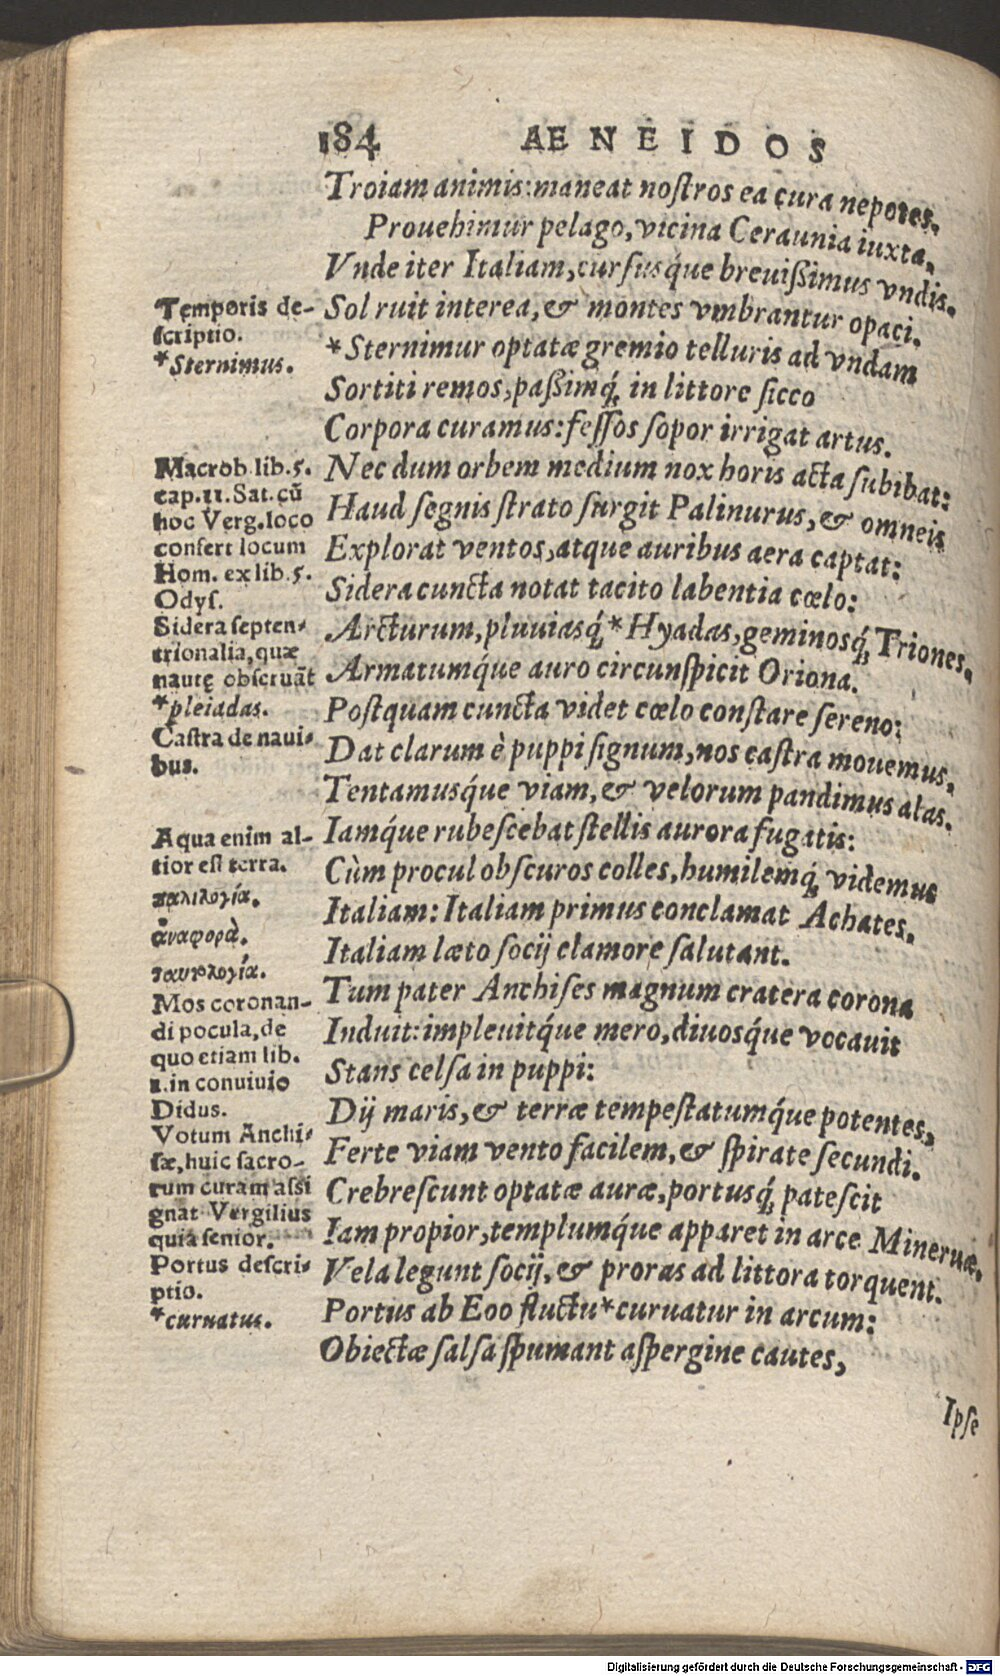 184 AENEIDOS
Troiam animis: maneat noſtros ea cura nepotes.
Prouehimur pelago, vicina Ceraunia iuxta.
Vnde iter Italiam, curſusq́ue breuißimus vndis.
Sol ruit interea, & montes vmbrantur opaci.
*Sternimur optatæ gremio telluris ad vndam
Sortiti remos, paßimq́; in littore ſicco
Corpora curamus: feſſos ſopor irrigat artus.
Nec dum orbem medium nox horis acta ſubibat:
Haud ſegnis ſtrato ſurgit Palinurus, & omneis
Explorat ventos, atque auribus aera captat:
Sidera cuncta notat tacito labentia cœlo:
Arcturum, pluuiasq́; *Hyadas, geminosq́; Triones.
Armatumq́ue auro circunſpicit Oriona.
Poſtquam cuncta videt cœlo conſtare ſereno:
Dat clarum è puppi ſignum, nos caſtra mouemus.
Tentamusq́ue viam, & velorum pandimus alas.
Iamq́ue rubeſcebat ſtellis aurora fugatis:
Cùm procul obſcuros colles, humilemq́; videmus
Italiam: Italiam primus conclamat Achates.
Italiam læto ſocij clamore ſalutant.
Tum pater Anchiſes magnum cratera corona
Induit: impleuitq́ue mero, diuosq́ue vocauit
Stans celſa in puppi:
Dij maris, & terræ tempeſtatumq́ue potentes,
Ferte viam vento facilem, & ſpirate ſecundi.
Crebreſcunt optatæ auræ, portusq́; pateſcit
Iam propior, templumq́ue apparet in arce Mineruæ.
Vela legunt ſocij, & proras ad littora torquent.
Portus ab Eoo fluctu *curuatur in arcum:
Obiectæ ſalſa ſpumant aſpergine cautes,
Ipſe
Temporis de-
ſcriptio.
*Sternimus.
Macrob. lib. 5.
cap. 11. Sat. cũ
hoc Verg. loco
confert locum
Hom. ex lib. 5.
Odyſ.
Sidera ſepten-
trionalia, quæ
nautę obſeruãt
*pleiadas.
Caſtra de naui-
bus.
Aqua enim al-
tior eſt terra.
παλιλογία.
ἀναφορὰ.
ταυτολογία.
Mos coronan-
di pocula, de
quo etiam lib.
1. in conuiuio
Didus.
Votum Anchi-
ſæ, huic ſacro-
rum curam aſsi
gnat Vergilius
quia ſenior.
Portus deſcri-
ptio.
*curuatus.
Digitalisierung gefördert durch die Deutsche Forschungsgemeinschaft - DFG